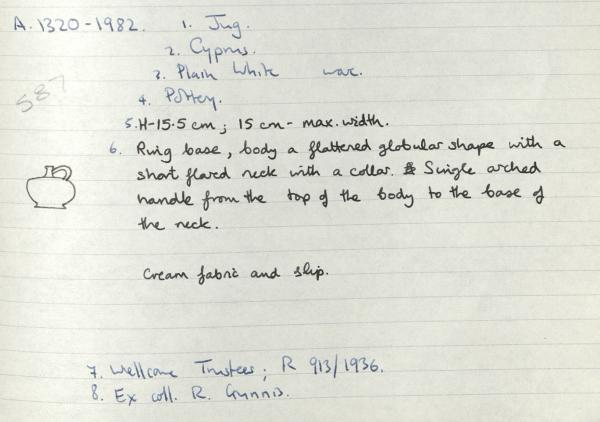 A. 1320-1982. 1. Jug.
2. Cyprus.
3. Plain White ware.
4. Pottery.
587
5. H-15.5 cm; 15 cm- max. width.
6. Ring base, body a flattened globular shape with a
short flared neck with a collar. Single arched
handle from the top of the body to the base of
the neck.
Cream fabric and slip.
7. Wellcome Trustees; R 913/1936.
8. Ex coll. R. Gunnis.